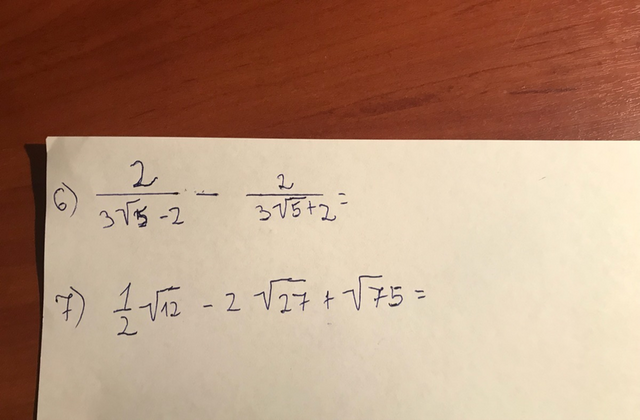 6) 2/(3√5-2) - 2/(3√5+2) =
7) 1/2 √12 - 2 √27 + √75 =